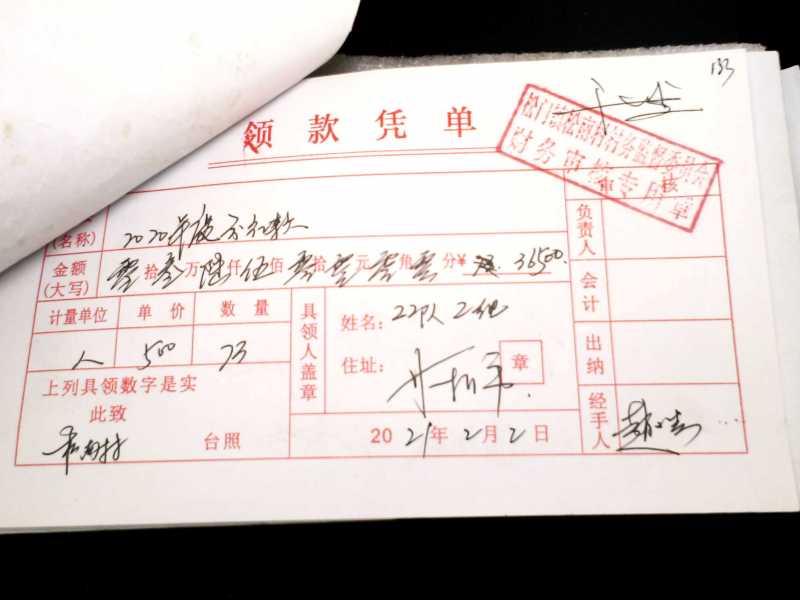 133
领款凭单
松门镇松南村村务监督委员会
财务审核专用章
审核
(名称) 2020年度
金额(大写) 零拾叁万陆仟伍佰零拾零元零角零分¥ 36500.
计量单位 单价 数量
人 500 73
具领人盖章
姓名: 22队
住址:
章
上列具领数字是实
此致
松南村 台照
2021年2月2日
负责人
会计
出纳
经手人